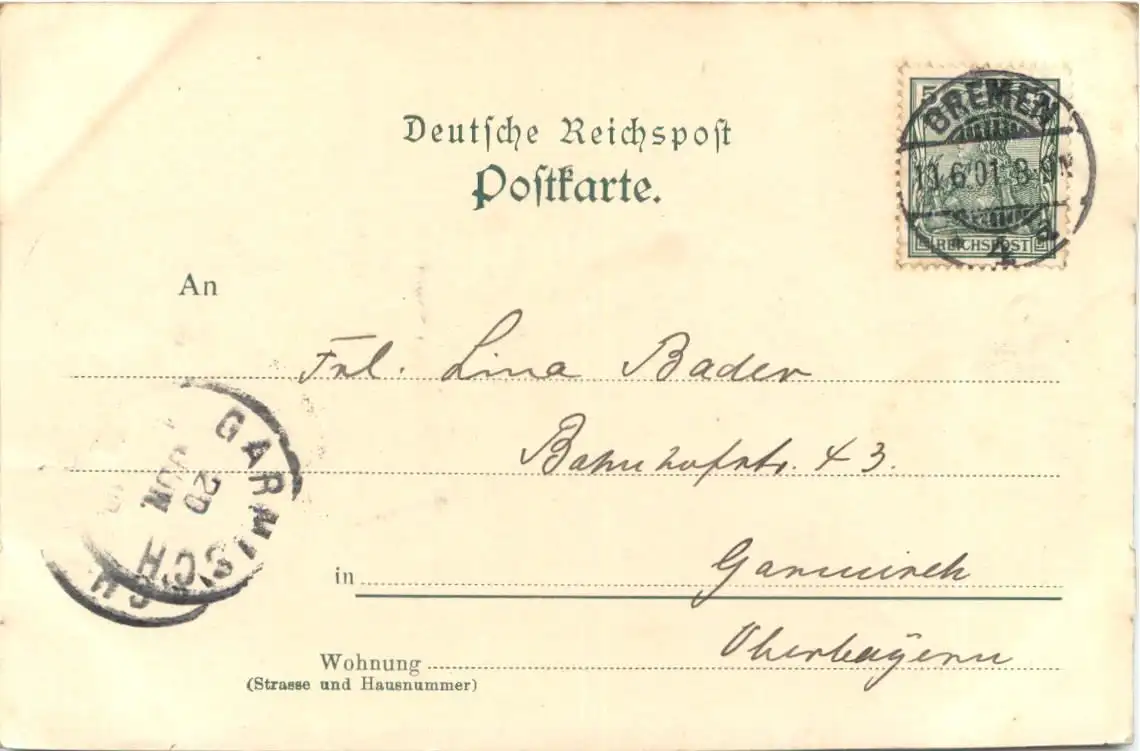 Deutsche Reichspost
Postkarte.
5
BREMEN
19.6.01.8-9N
4 a
REICHSPOST
An
Frl. Lina Bader
Bahnhofstr. 43.
GARMISCH
20
JUN.
CH
in Garmisch
Oberbayern
Wohnung
(Strasse und Hausnummer)